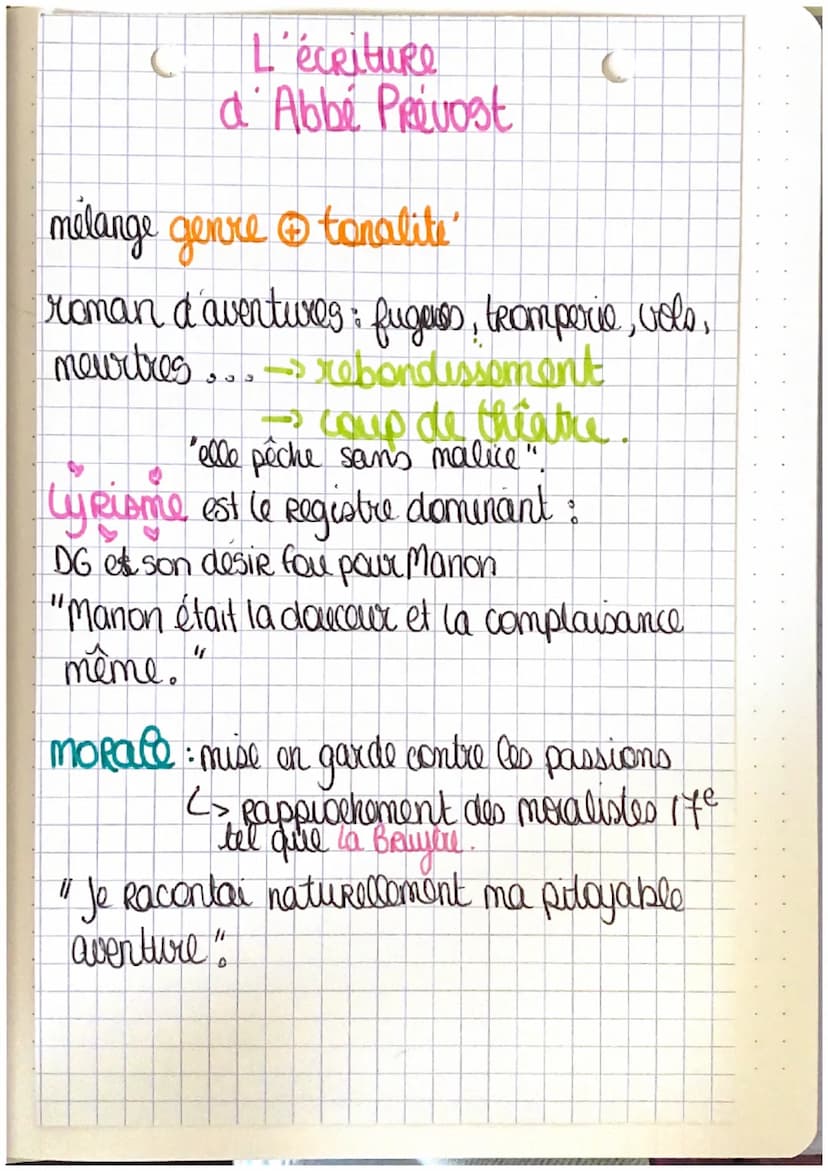 L'écriture
d'Abbé Prévost
mélange genre ⊕ tonalité
roman d'aventures : fugues, tromperie, vols,
meurtres ... → rebondissement
→ coup de théâtre.
"elle pêche sans malice".
Lyrisme est le registre dominant :
DG et son désir fou pour Manon
"Manon était la douceur et la complaisance
même."
Morale : mise en garde contre les passions
↳ rapprochement des moralistes 17e
tel que la Bruyère.
"Je racontai naturellement ma pitoyable
aventure".